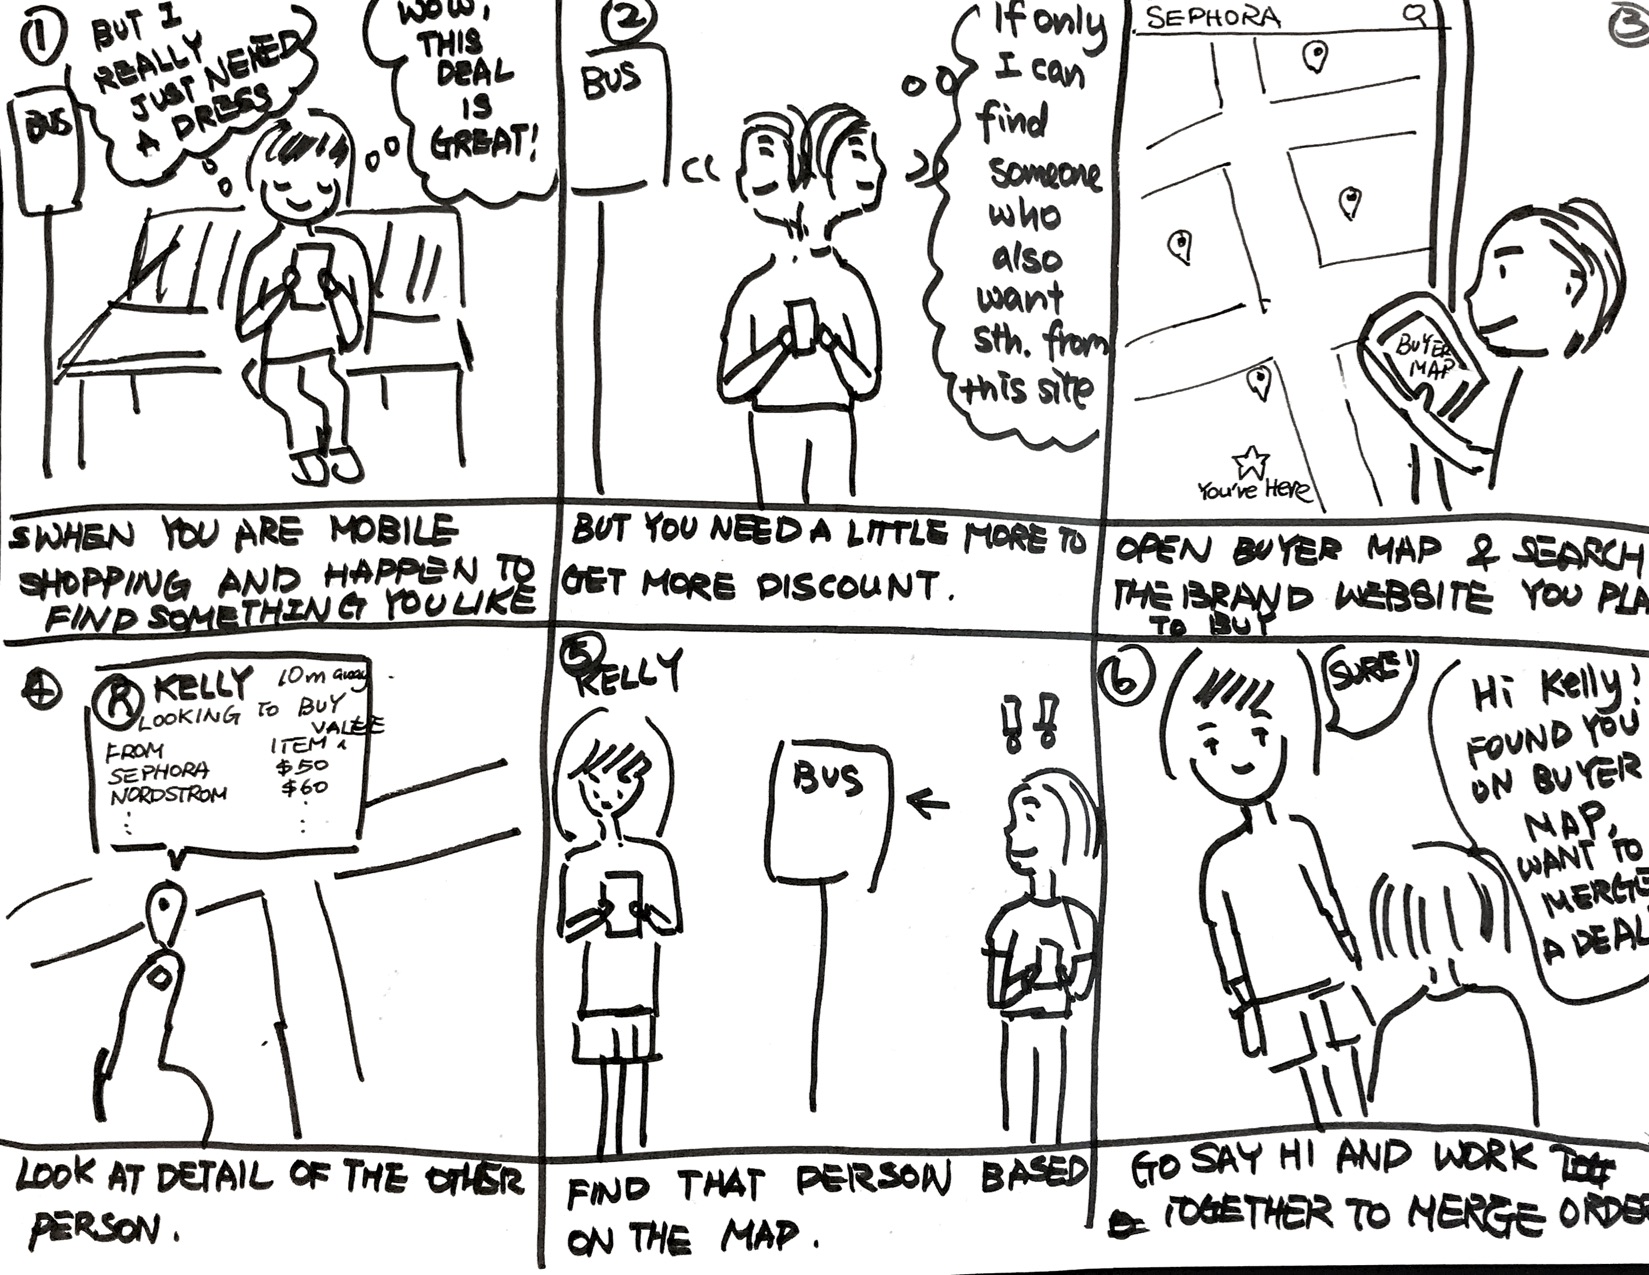 1
BUT I
REALLY
JUST NEED
A DRESS
WOW,
THIS
DEAL
IS
GREAT!
BUS
SWHEN YOU ARE MOBILE
SHOPPING AND HAPPEN TO
FIND SOMETHING YOU LIKE
2
BUS
If only
I can
find
someone
who
also
want
sth. from
this site
BUT YOU NEED A LITTLE MORE TO
GET MORE DISCOUNT.
3
SEPHORA
BUYER
MAP
You've Here
OPEN BUYER MAP & SEARCH
THE BRAND WEBSITE YOU PLA
TO BUY
4
R KELLY 10m away
LOOKING TO BUY
FROM ITEM VALUE
SEPHORA $50
NORDSTROM $60
LOOK AT DETAIL OF THE OTHER
PERSON.
5
KELLY
!!
BUS
FIND THAT PERSON BASED
ON THE MAP.
6
SURE!
Hi Kelly!
FOUND YOU
ON BUYER
MAP,
WANT TO
MERGE
A DEAL
GO SAY HI AND WORK
TOGETHER TO MERGE ORDER